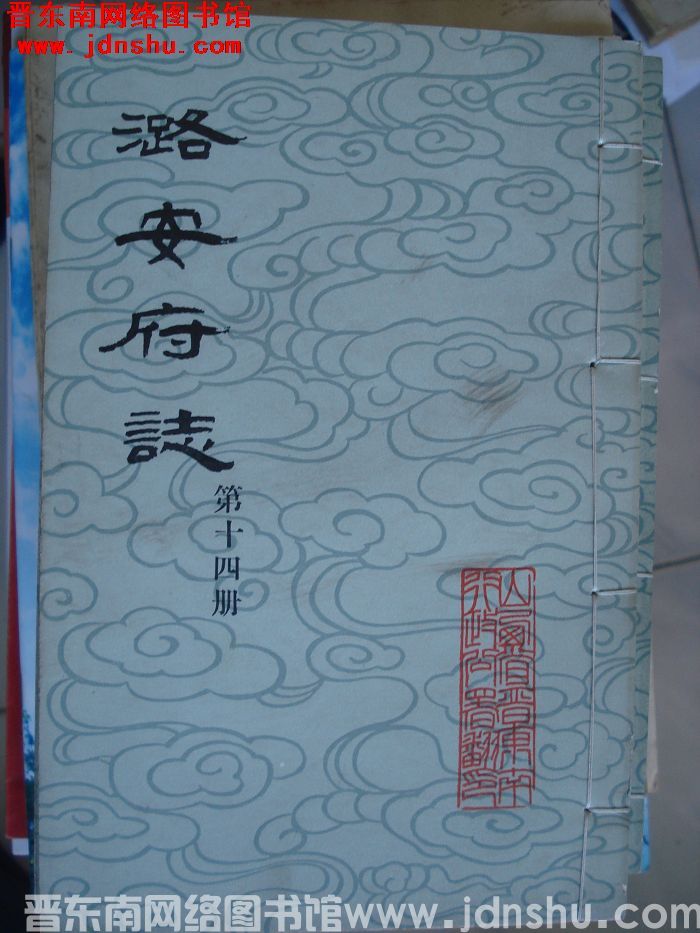 晋东南网络图书馆
www.jdnshu.com
潞安府誌
第十四册
山西省晋东南
行政公署翻印
晋东南网络图书馆www.jdnshu.com